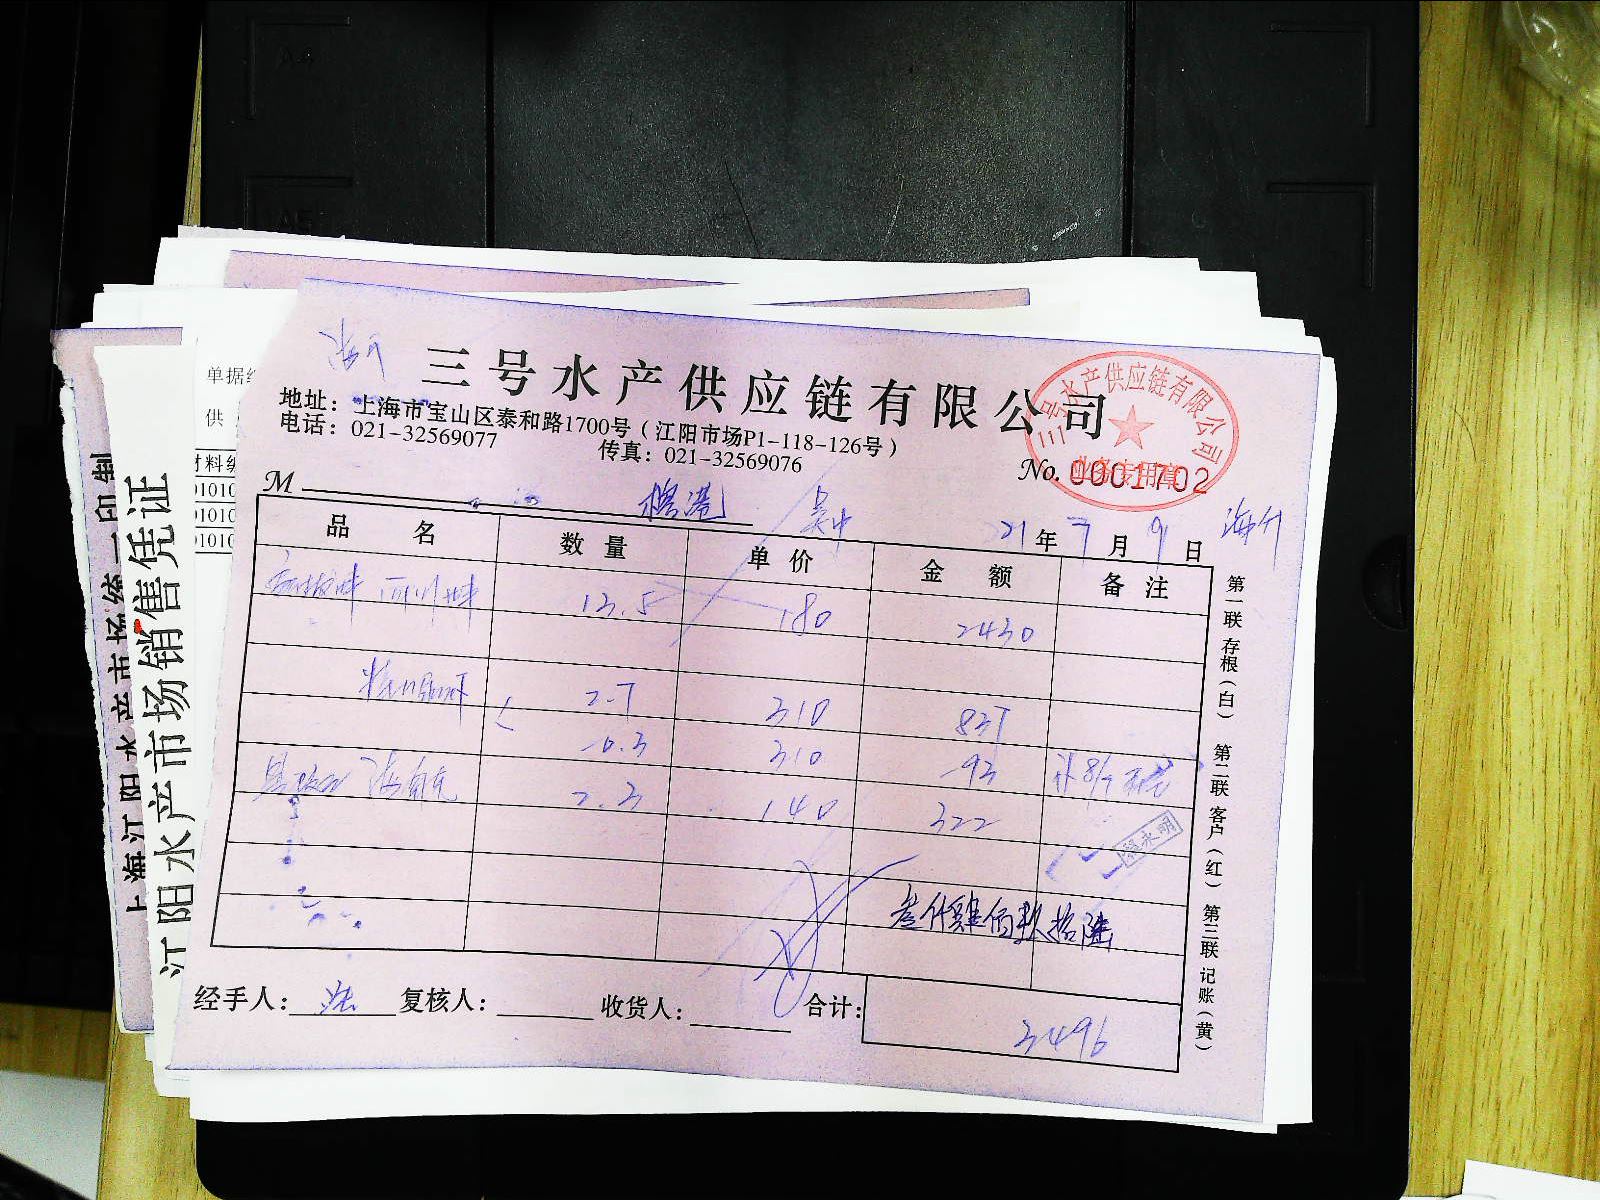 三号水产供应链有限公司
地址：上海市宝山区泰和路1700号（江阳市场P1-118-126号）
电话：021-32569077 传真：021-32569076
三号水产供应链有限公司
业务专用章
No. 0001702
M
21年7月9日
品名 数量 单价 金额 备注
13.5 180 2430
2.7 310 837
-0.3 310 -93
2.3 140 322
叁仟肆佰玖拾陆
经手人： 复核人： 收货人： 合计：
3496
第一联存根（白） 第二联客户（红） 第三联记账（黄）
单据编
供
材料编
01010
01010
01010
江阳水产市场销售凭证
上海江阳水产市场统一印制